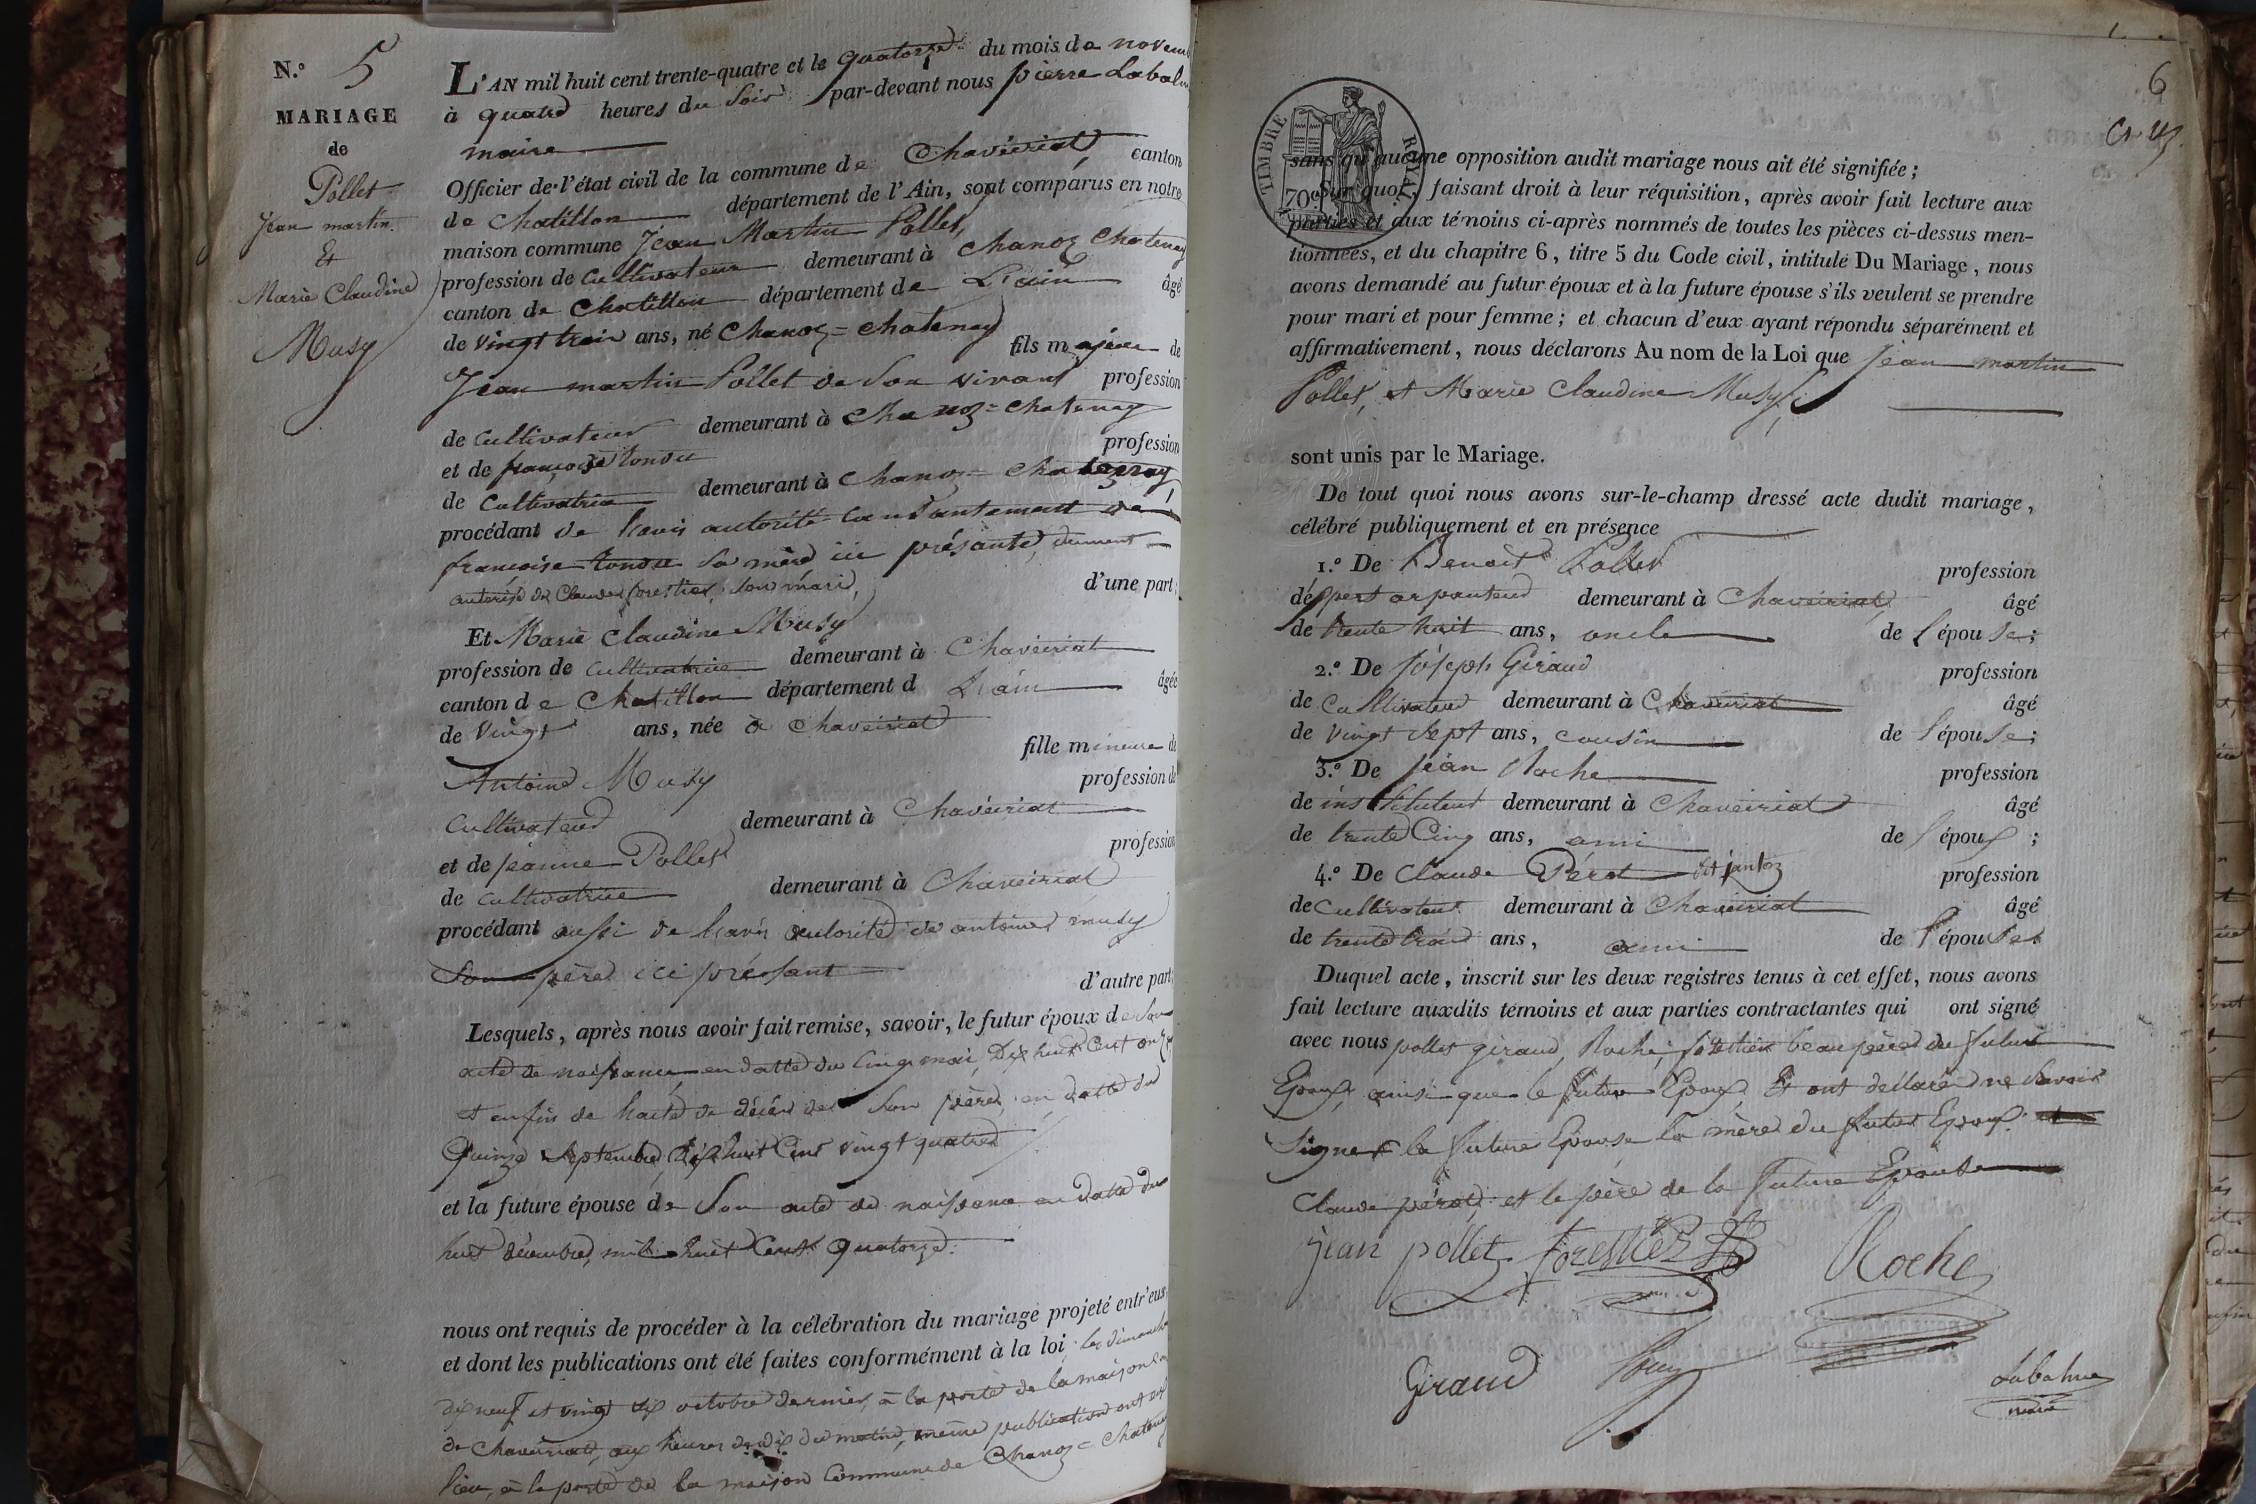 N.º 5
MARIAGE
de
Pollet
Jean martin.
Et
Marie Claudine
Musy
L'AN mil huit cent trente-quatre et le quatorze du mois de novem
à quatre heures du soir par-devant nous pierre Labalm
maire
Officier de l'état civil de la commune de Chaveiriat canton
de chatillon département de l'Ain, sont comparus en notre
maison commune Jean Martin Pollet,
profession de cultivateur demeurant à chanoz chatenay
canton de Chatillon département de L'ain âgé
de vingt trois ans, né Chanoz=chatenay
fils majeur de
Jean martin Pollet de son vivant profession
de cultivateur demeurant à chanoz=chatenay
et de françoise tondu profession
de cultivatrice demeurant à chanoz=chatenay
procédant de lavis autorité consantement de
francoise tondu sa mère ici présante, dument
autorisé de Claude forestier, son mari, d'une part;
Et Marie Claudine Musy
profession de cultivatrice demeurant à Chaveiriat
canton de Chatillon département d L'ain âgée
de vingt ans, née à chaveiriat
fille mineure de
Antoine Musy profession de
cultivateur demeurant à Chaveiriat
et de jeanne Pollet profession
de cultivatrice demeurant à Chaveiriat
procédant aussi de lavis autorité de antoine musy
son père ici présant d'autre part;
Lesquels, après nous avoir fait remise, savoir, le futur époux de son
acte de naissance en datte du cinq mai, dix huit cent onze
et enfin de lacte de décés de son père, en datte du
Quinze septembre dix huit cent vingt quatre
et la future épouse de son acte de naissance en datte du
huit décembre, mil huit cent quatorze.
nous ont requis de procéder à la célébration du mariage projeté entr'eux
et dont les publications ont été faites conformément à la loi les dimanche
dix neuf et vingt six octobre dernier, à la porte de la maison
de chaveiriat, aux heures de dix du matin, même publication ont eu
lieu, à la porte de la maison commune de Chanoz=Chatenay
6
TIMBRE ROYAL
70 c.
sans qu'aucune opposition audit mariage nous ait été signifiée;
Sur quoi, faisant droit à leur réquisition, après avoir fait lecture aux
parties et aux témoins ci-après nommés de toutes les pièces ci-dessus men-
tionnées, et du chapitre 6, titre 5 du Code civil, intitulé Du Mariage, nous
avons demandé au futur époux et à la future épouse s'ils veulent se prendre
pour mari et pour femme; et chacun d'eux ayant répondu séparément et
affirmativement, nous déclarons Au nom de la Loi que Jean martin
Pollet, et Marie Claudine Musy
sont unis par le Mariage.
De tout quoi nous avons sur-le-champ dressé acte dudit mariage,
célébré publiquement et en présence
1.º De Benoit Pollet profession
déxpert arpanteur demeurant à Chaveiriat âgé
de trente huit ans, oncle de l'épouse;
2.º De joseph Giraud profession
de cultivateur demeurant à Chaveiriat âgé
de vingt sept ans, cousin de l'épouse;
3.º De jean Roche profession
de instituteur demeurant à Chaveiriat âgé
de trente Cinq ans, ami de l'époux;
4.º De Claude Pérot dit jantoz profession
de cultivateur demeurant à Chaveiriat âgé
de trente trois ans, ami de l'épouse.
Duquel acte, inscrit sur les deux registres tenus à cet effet, nous avons
fait lecture auxdits témoins et aux parties contractantes qui ont signé
avec nous pollet giraud, Roche, forestier beau père du futur
Epoux, ainsi que le futur Epoux, Et ont dellaré ne savoir
signer la future Epouse la mère du futur Epoux
Claude pérot, et le père de la future Epouse
jean pollet forestier Roche
Giraud Labalme
maire